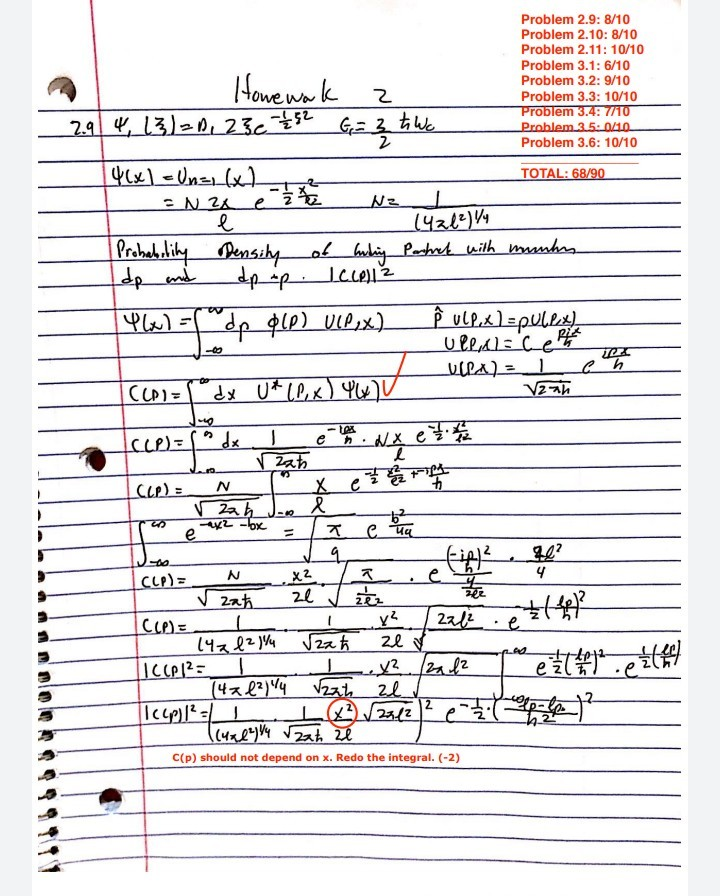 Problem 2.9: 8/10
Problem 2.10: 8/10
Problem 2.11: 10/10
Problem 3.1: 6/10
Problem 3.2: 9/10
Problem 3.3: 10/10
Problem 3.4: 7/10
Problem 3.5: 0/10
Problem 3.6: 10/10
TOTAL: 68/90
Homework 2
2.9 Ψ₁(ξ) = N₁ 2ξ e^{-1/2 ξ²} = 3/2 ħωc
Ψ(x) = U_{n=1}(x)
= N 2x/ℓ e^{-1/2 x²/ℓ²} N = 1/(4πℓ²)^{1/4}
Probability Density of Particle with
dp and dp + p. |C(p)|²
Ψ(x) = ∫_{-∞}^{∞} dp φ(p) U(p,x) p̂ U(p,x) = pU(p,x)
U(p,x) = C e^{pix/ħ}
U(p,x) = 1/√(2πħ) e^{ipx/ħ}
C(p) = ∫_{-∞}^{∞} dx U*(p,x) Ψ(x) ✓
C(p) = ∫_{-∞}^{∞} dx 1/√(2πħ) e^{-ipx/ħ} · Nx/ℓ e^{-1/2 · x²/ℓ²}
C(p) = N/√(2πħ) ∫_{-∞}^{∞} x/ℓ e^{-1/2 x²/ℓ² + -ipx/ħ}
∫_{-∞}^{∞} e^{-ax² - bx} = √(π/a) e^{b²/4a}
C(p) = N/√(2πħ) · x²/2ℓ · √(π/(1/2ℓ²)) · e^{(-ip/ħ)²/(4/2ℓ²)}
C(p) = 1/(4πℓ²)^{1/4} · 1/√(2πħ) · x²/2ℓ · √(2πℓ²) · e^{-1/2(ℓp/ħ)²}
|C(p)|² = 1/(4πℓ²)^{1/4} · 1/√(2πħ) · x²/2ℓ √(2πℓ²) ∫^{∞} e^{-1/2(ℓp/ħ)²} · e^{1/2(ℓp/ħ)}
|C(p)|² = (1/(4πℓ²)^{1/4} · 1/√(2πħ) x²/2ℓ √(2πℓ²))² e^{-1/2 ·
C(p) should not depend on x. Redo the integral. (-2)